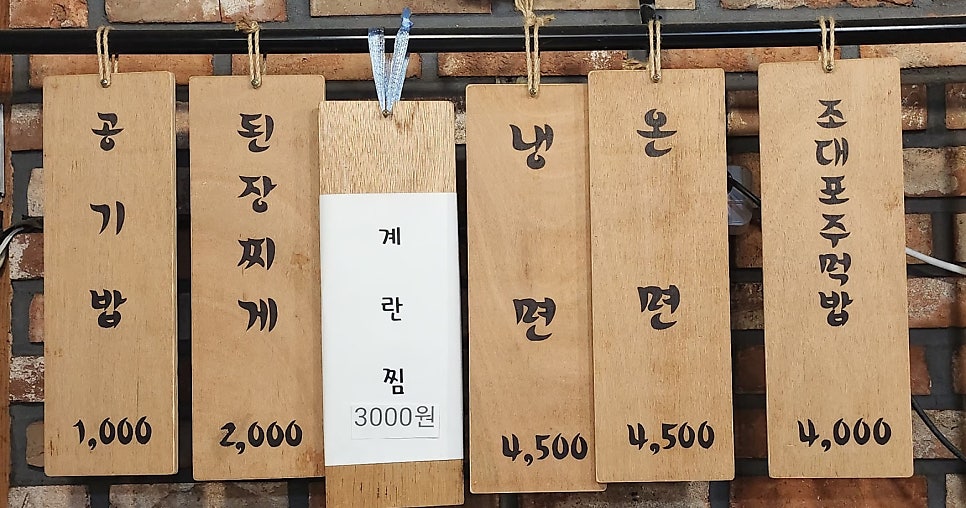 공기밥
1,000
된장찌게
2,000
계란찜
3000원
냉면
4,500
온면
4,500
조대포주먹밥
4,000